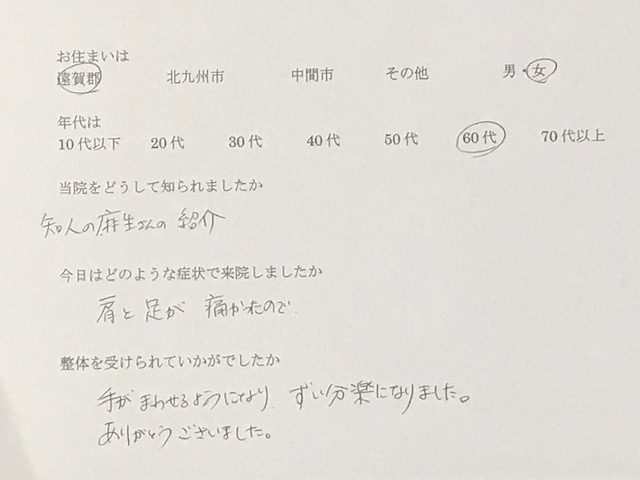 お住まいは
遠賀郡 北九州市 中間市 その他 男・女
年代は
10代以下 20代 30代 40代 50代 60代 70代以上
当院をどうして知られましたか
知人の麻生さんの紹介
今日はどのような症状で来院しましたか
肩と足が痛かったので.
整体を受けられていかがでしたか
手がまわせるようになり ずい分楽になりました。
ありがとうございました。